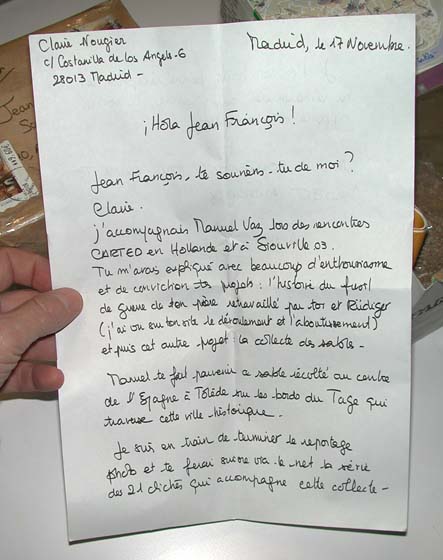 Claire Nougier
c/ Costanilla de los Angeles-6
28013 Madrid -
Madrid, le 17 Novembre.
¡Hola Jean François!
Jean François, te souviens-tu de moi ?
Claire.
j'accompagnais Manuel Vaz lors des rencontres
CARTED en Hollande et à Siouville 03.
Tu m'avais expliqué avec beaucoup d'enthousiasme
et de conviction tes projets : l'histoire du fusil
de guerre de ton père retravaillé par toi et Rüdiger
(j'ai vu sur ton site le déroulement et l'aboutissement)
et puis cet autre projet : la collecte des sables -
Manuel te fait parvenir ce sable récolté au centre
de l'Espagne à Tolède sur les bords du Tage qui
traverse cette ville historique.
Je suis en train de terminer le reportage
photo et te ferai suivre via le net la série
des 21 clichés qui accompagne cette collecte -